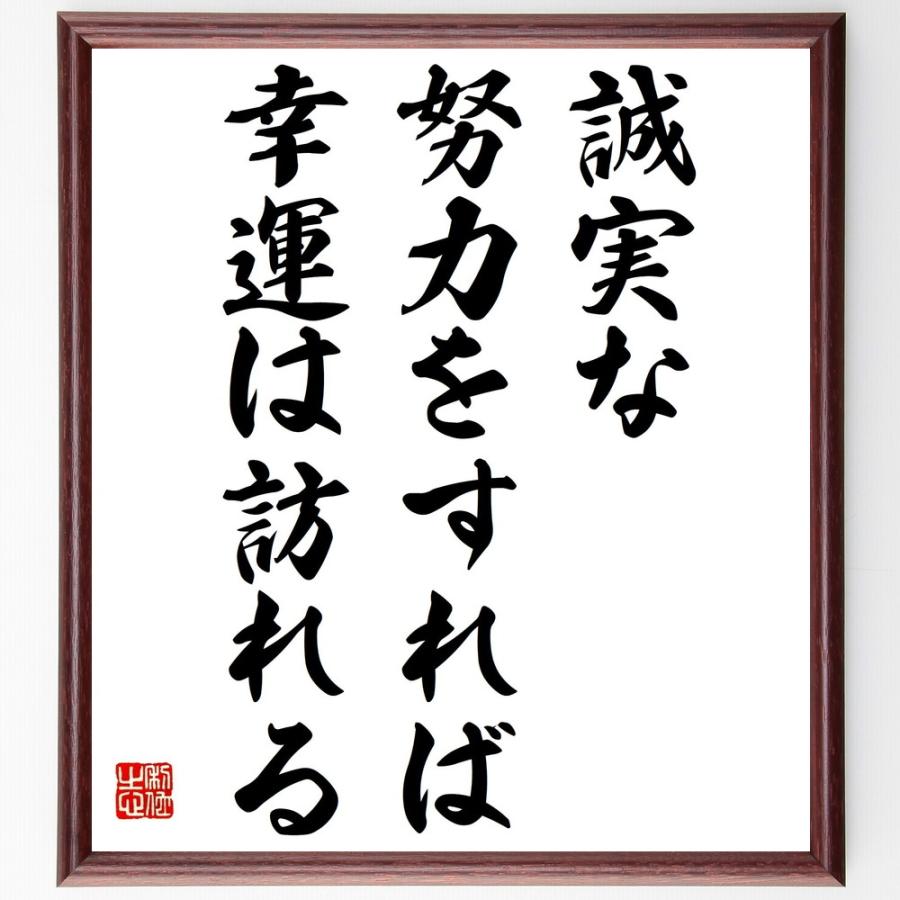 誠実な
努力をすれば
幸運は訪れる